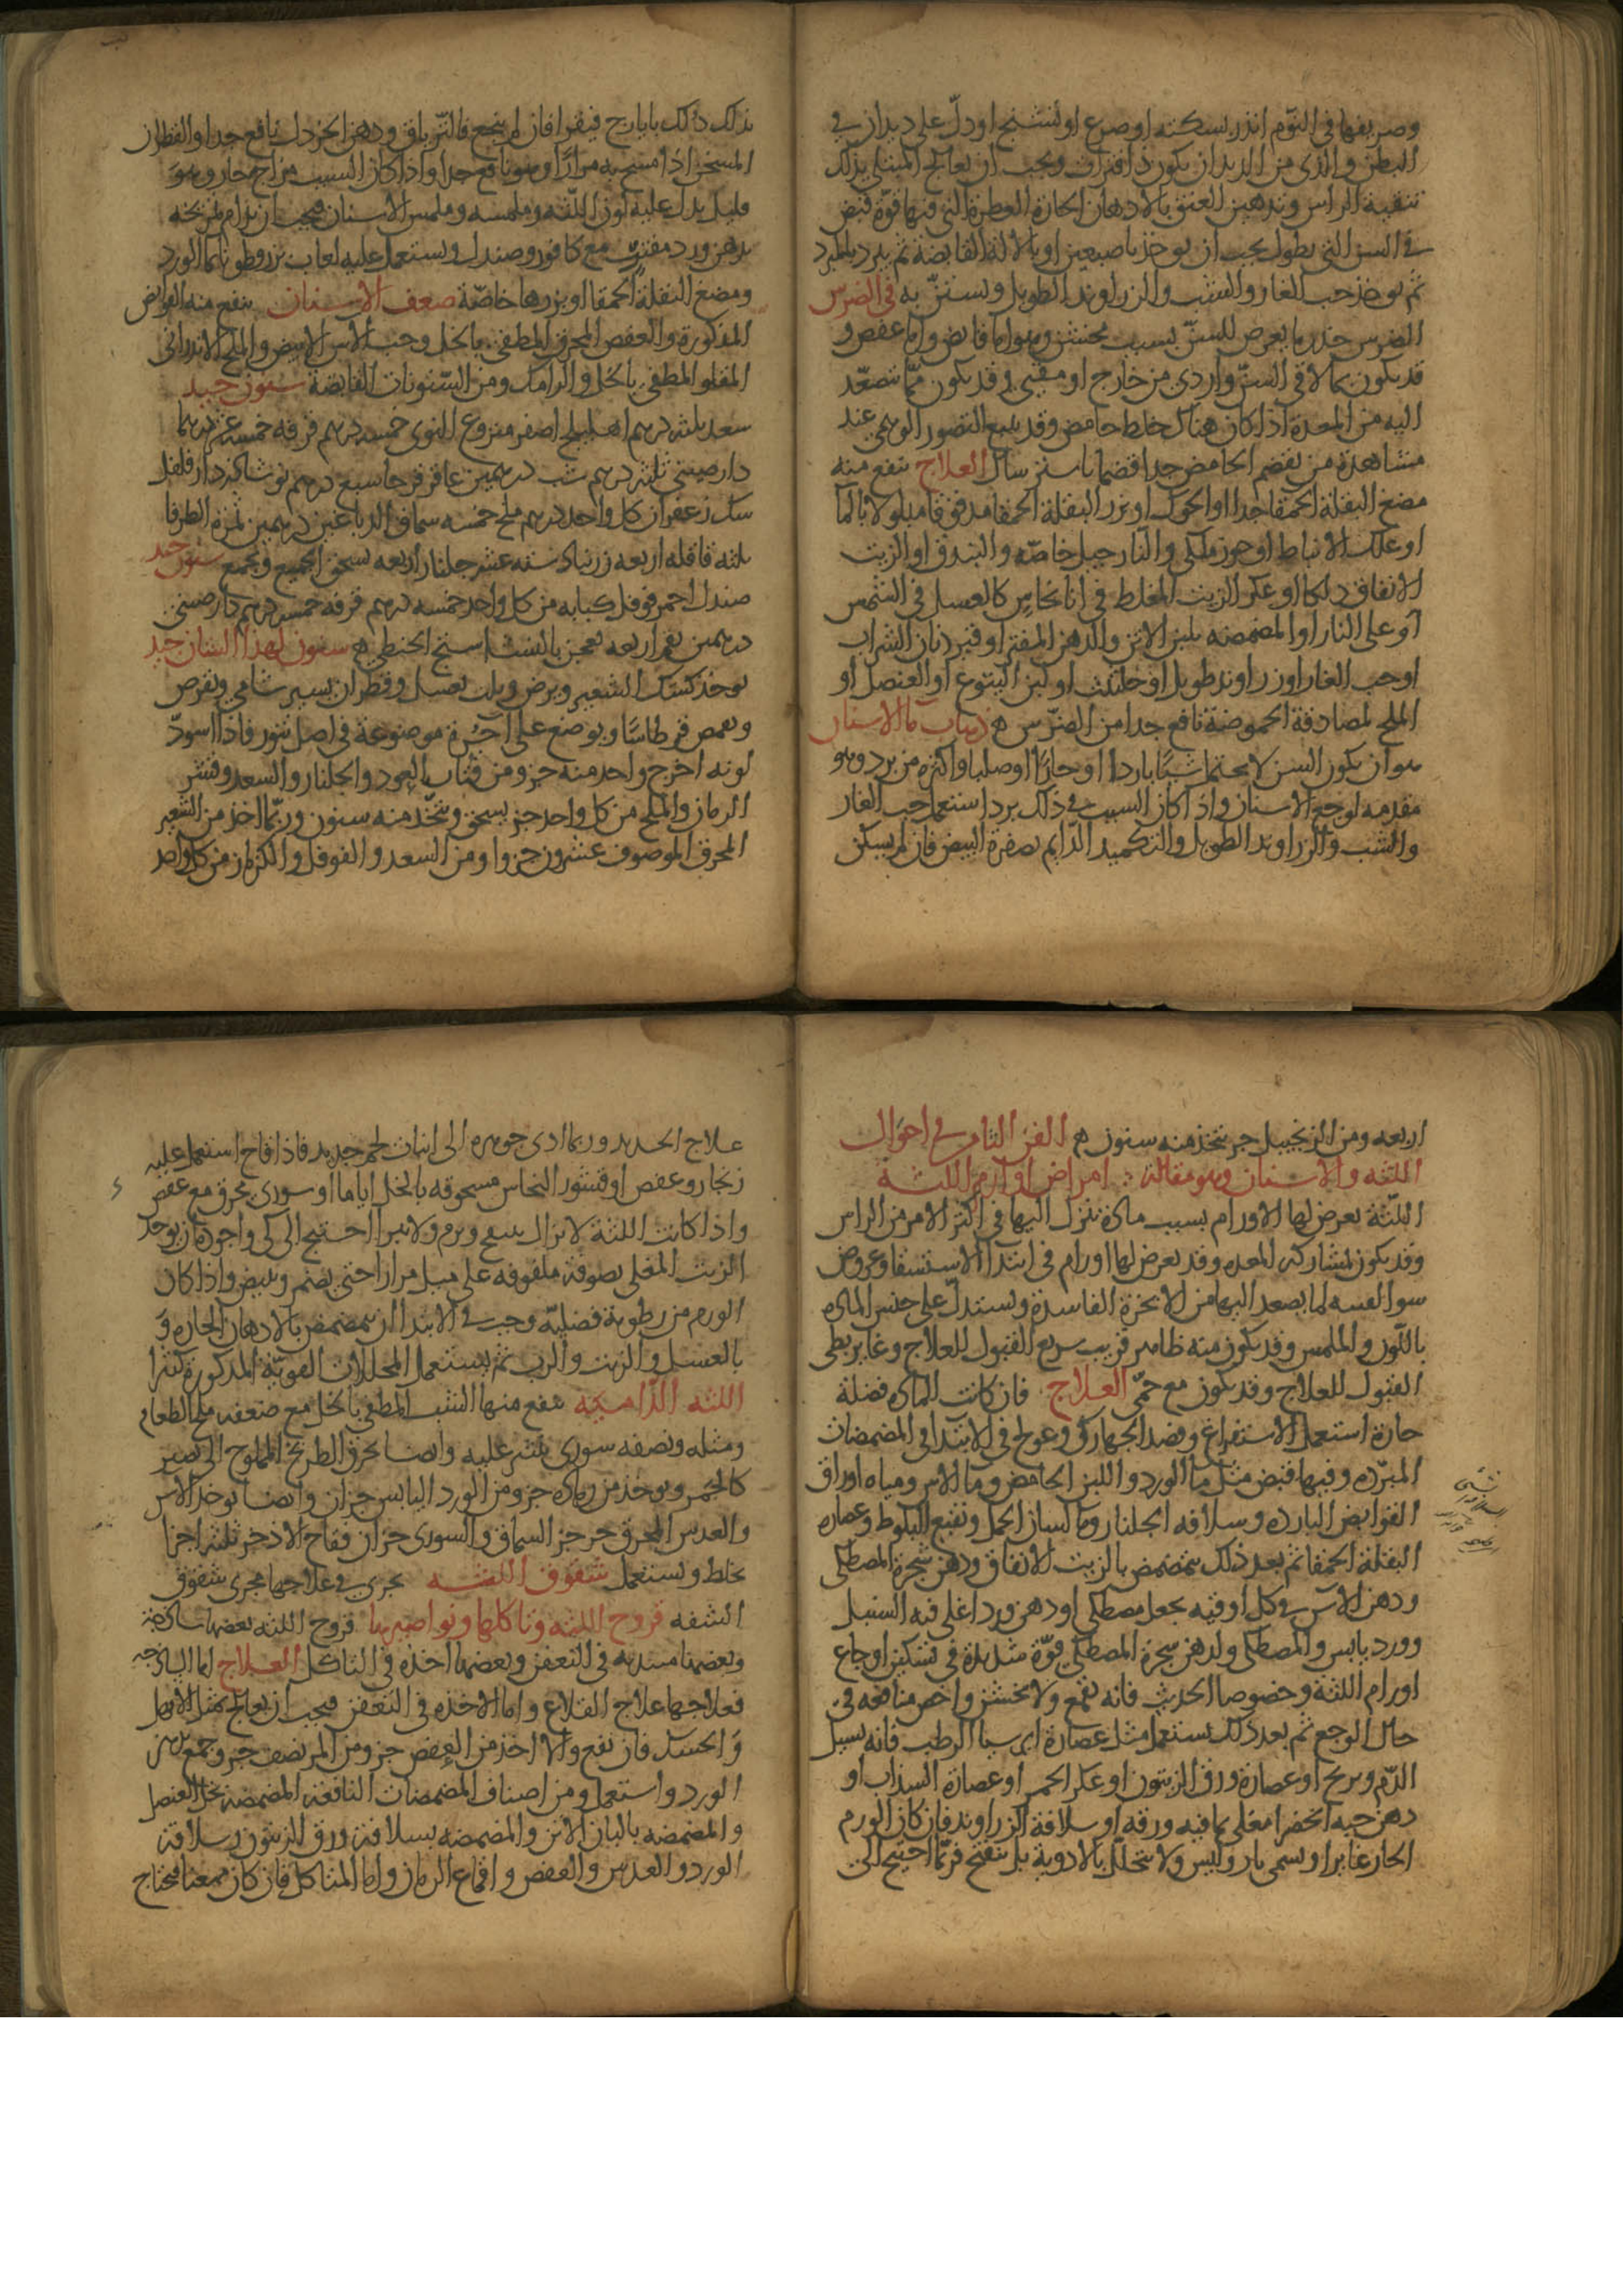 وصريفها في النوم انذر بسكته او صرع او تشنج او دل على ديدان في
البطن والذى من الديدان يكون ذا فترات ويجب ان يعالج المبتلى بذلك
بتنقية الراس وتدهين العنق بالادهان الحارة العطرة التي فيها قوة قبض
في السن التي تطول يجب ان يوخذ باصبعين او بالالة القابضة ثم يبرد بالمبرد
ثم يوخذ حب الغار والشب والزراوند الطويل ويستن به في الضرس
الضرس خدر ما يعرض للسن بسبب مخشن وهو اما قابض واما عفص و
قد يكون بما لاقى السن وارد من خارج او مقيى وقد يكون مما تصعد
اليه من المعدة اذا كان هناك خلط حامض وقد يتبع التصور الوهمي عند
مشاهدة من يقضم الحامض جدا قضما باسترسال العلاج ينفع منه
مضغ البقلة الحمقا جدا او الحوك او بزر البقلة الحمقا مدقوقا مبلولا بالما
او علك الانباط او جوز ملكي والنارجيل خاصه والبندق او الزيت
الانفاق دلكا او عكر الزيت المغلظ في انا نحاس كالعسل في الشمس
او على النار او المضمضه بلبن الاتن والدهن المفتر او قير دنان الشراب
او حب الغار او زراوند طويل او حلتيت او لبن اليتوع او العنصل او
الملح لمصادقة الحموضة نافع جدا من الضرس ذهاب ما الاسنان
هو ان يكون السن لا يحتمل شيا باردا او حارا او صلبا واكثره من برد وهو
مقدمه لوجع الاسنان واذا كان السبب في ذلك بردا استعمل حب الغار
والشب والزراوند الطويل والتكميد الدايم بصفرة البيض فان لم يسكن
بذلك دلك بايارج فيقرا فان لم ينجع فالترياق ودهن الخردل نافع جدا والقطران
المسخن اذا مسح به مرارا وهو نافع جدا واذا كان السبب مزاج حار وهو
قليل يدل عليه لون اللثه وملمسه وملمس الاسنان فيجب ان يدام تمريخه
بدهن ورد مفتر مع كافور وصندل ويستعمل عليه لعاب بزر قطونا بما الورد
ومضغ البقلة الحمقا او بزرها خاصة ضعف الاسنان ينفع منه القوابض
المذكورة والعفص المحرق المطفى بالخل وحب الاس الابيض والملح الاندراني
المقلو المطفى بالخل والرامك ومن السنونات القابضة سنون جيد
سعد ثلثه درهم اهليلج اصفر منزوع النوى خمسه درهم قرفه خمسه عشر درهما
دارصيني ثلثه درهم شب درهمين عاقرقرحا سبع درهم نوشادر دارفلفل
سك زعفران كل واحد درهم ملح خمسه سماق الدباغين درهمين ثمرة الطرفا
ثلثه قاقله اربعه زرنباد سته عشر جلنار اربعه يسحق الجميع ويجمع سنون جيد
صندل احمر فوفل كبابه من كل واحد خمسه درهم قرفه خمس درهم دارصيني
درهمين بقم اربعه يعجن بالنشاستج الحنطي سنون لهذا الشان جيد
يوخذ كشك الشعير ويرض ويلت بعسل وقطران يسير شامي ويقرص
ويغمس قرطاسا ويوضع على اجرة موضوعة في اصل تنور فاذا اسود
لونه اخرج واحد منه جزو من فتات العود والجلنار والسعد وقشر
الرمان والملح من كل واحد جز يسحق ويتخذ منه سنون وربما اخذ من الشعير
المحرق الموصوف عشرون جزوا ومن السعد والفوفل والكزمازك من كل واحد
اربعه ومن الزنجبيل جز يتخذ منه سنون الفن الثامن في احوال
اللثه والاسنان وهو مقالة امراض اورام اللثه
اللثة يعرض لها الاورام بسبب مادة تنزل اليها في اكثر الامر من الراس
وقد يكون لمشاركه المعده وقد يعرض لها اورام في ابتدا الاستسقا وعروض
سو القنيه لما يصعد اليها من الابخرة الفاسدة ويستدل على جنس الماده
باللون والملمس وقد يكون منه ظاهر قريب سريع القبول للعلاج وغاير بطى
القبول للعلاج وقد يكون مع حمى العلاج فان كانت الماده فضلة
حارة استعمل الاستفراغ وفصد الجهارك وعولج في الابتدا في المضمضات
المبرده وفيها قبض مثل ما الورد واللبن الحامض وما الاس ومياه اوراق
القوابض البارده وسلافه الجلنار وما لسان الحمل ونقيع البلوط وعصاره
البقلة الحمقا ثم بعد ذلك يتمضمض بالزيت الانفاق ودهن شجرة المصطكى
ودهن الاس في كل اوقيه يجعل مصطكى او دهن ورد اغلى فيه السنبل
وورد يابس والمصطكى ولدهن شجرة المصطكى قوة شديدة في تسكين اوجاع
اورام اللثة وخصوصا الحديث فانه يقمع ولا يخشن واخص منافعه في
حال الوجع ثم بعد ذلك يستعمل مثل عصارة ايرسا الرطب فانه يسيل
الدم ويريح او عصارة ورق الزيتون او عكر الخمر او عصارة السذاب او
دهن حبه الخضرا مغلى بما فيه ورقه او سلافة الزراوند فان كان الورم
الحار غايرا ويسمى باروليس ولا يتحلل بالادوية بل يتفتح فربما احتيج الى
علاج الحديد وربما ادى جوهره الى انبات لحم جديد فاذا فاح استعمل عليه
زنجار وعفص او قشور النحاس مسحوقه بالخل اياما او سورى محرق مع عفص
واذا كانت اللثة لا تزال ينتفخ ويرم ولا يبرا احتيج الى كي واجوده ان يوخذ
الزيت المغلى بصوفة ملفوفه على ميل مرارا حتى يضمر ويبيض واذا كان
الورم من رطوبة فضلية وجب في الابتدا ان يتمضمض بالادهان الحاره و
بالعسل والزيت والرب ثم يستعمل المحللات القوية المذكورة كثيرا
اللثه الداميه ينفع منها الشب المطفى بالخل مع ضعفه ملح الطعام
ومثله ونصفه سورى ينثر عليه وايضا يحرق الطريخ المملوح الى ان يصير
كالجمر ويوخذ من رماده جزو ومن الورد اليابس جزان وايضا يوخذ الاس
والعدس المحرق جز جز السماق والسورى جزان فقاح الاذخر ثلثه اجزا
يخلط ويستعمل شقوق اللثه يجرى في علاجها مجرى شقوق
الشفه قروح اللثه وتاكلها ونواصيرها قروح اللثه بعضها ساذجة
وبعضها مبتديه في التعفن وبعضها اخذه في التاكل العلاج اما الساذجه
فعلاجها علاج القلاع واما الاخذه في التعفن فيجب ان يعالج بمثل الابهل
و الحسك فان نفع والا اخذ من العفص جزو ومن المر نصف جز وجمع بدهن
الورد واستعمل ومن اصناف المضمضات النافعة المضمضة بخل العنصل
والمضمضه بالبان الاتن والمضمضه بسلافة ورق الزيتون وسلافة
الورد والعدس والعفص واقماع الرمان واما المتاكل فان كان ممعنا فيحتاج